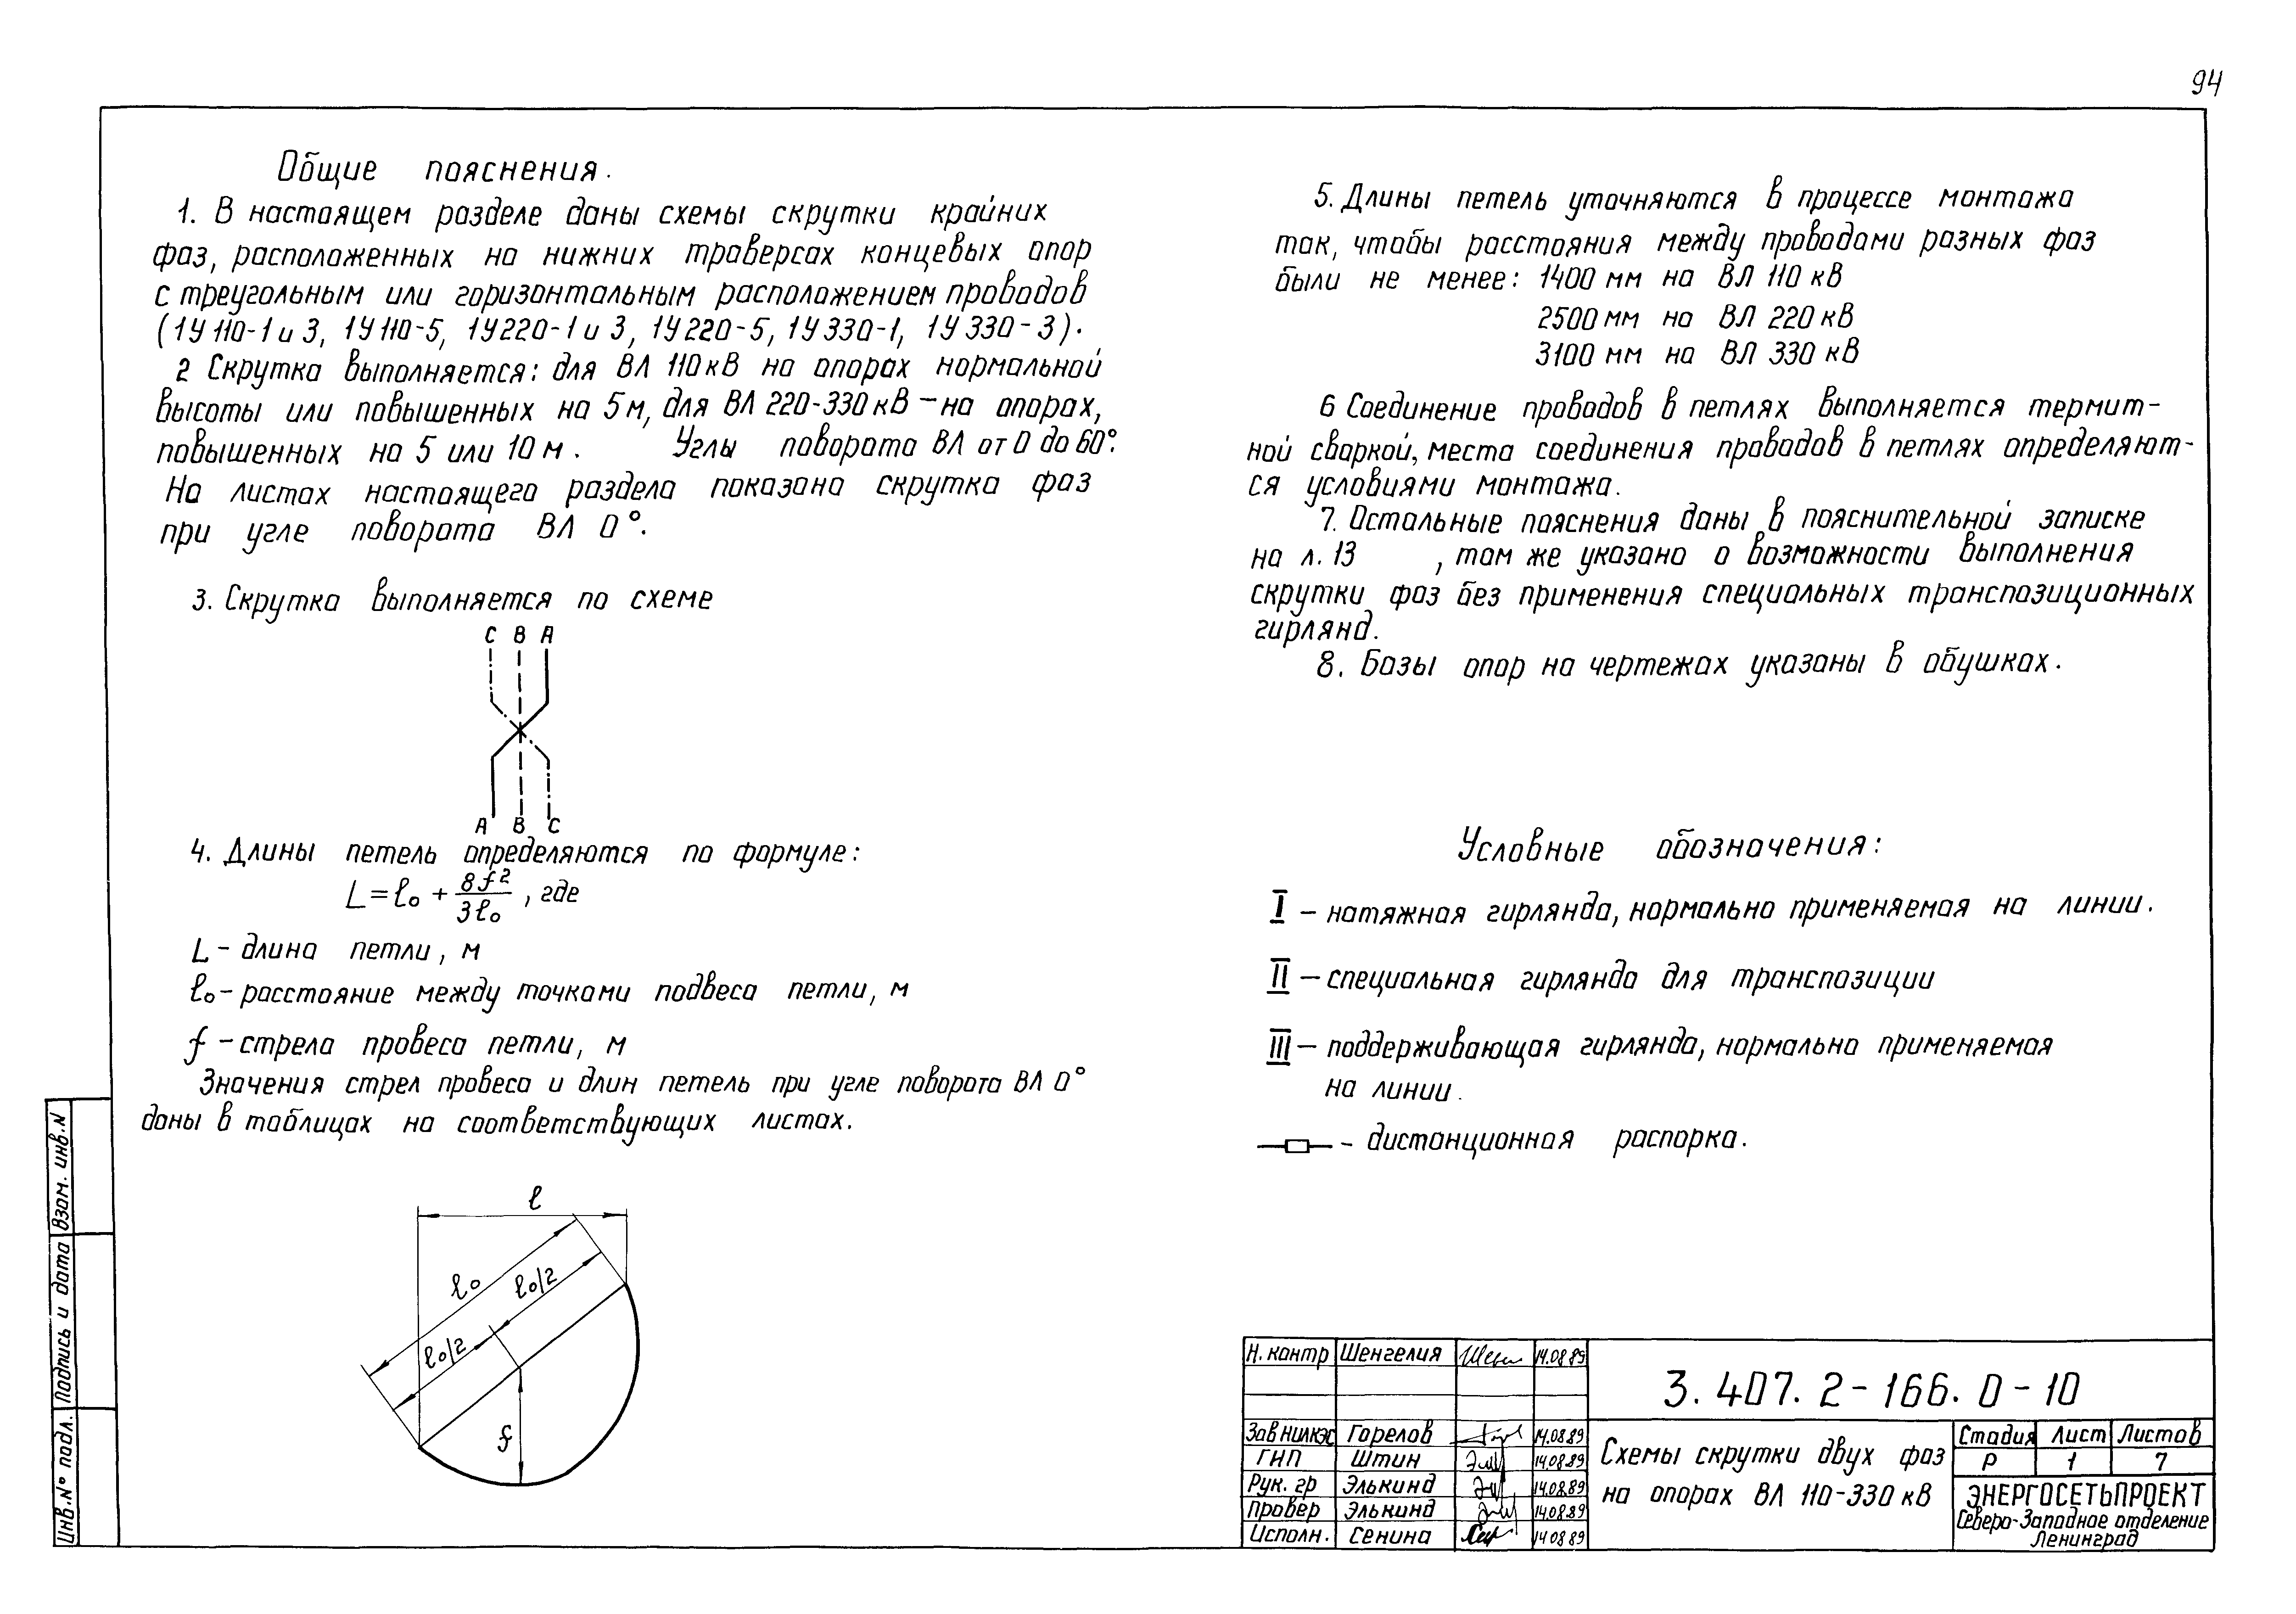 94
Общие пояснения.
1. В настоящем разделе даны схемы скрутки крайних
фаз, расположенных на нижних траверсах концевых опор
с треугольным или горизонтальным расположением проводов
(1У110-1 и 3, 1У110-5, 1У220-1 и 3, 1У220-5, 1У330-1, 1У330-3).
2 Скрутка выполняется: для ВЛ 110кВ на опорах нормальной
высоты или повышенных на 5м, для ВЛ 220-330кВ - на опорах,
повышенных на 5 или 10м. Углы поворота ВЛ от 0 до 60°.
На листах настоящего раздела показана скрутка фаз
при угле поворота ВЛ 0°.
3. Скрутка выполняется по схеме
С В А
А В С
4. Длины петель определяются по формуле:
L = ℓ₀ + 8f²/3ℓ₀, где
L - длина петли, м
ℓ₀ - расстояние между точками подвеса петли, м
f - стрела провеса петли, м
Значения стрел провеса и длин петель при угле поворота ВЛ 0°
даны в таблицах на соответствующих листах.
ℓ
ℓ₀
ℓ₀/2
ℓ₀/2
f
5. Длины петель уточняются в процессе монтажа
так, чтобы расстояния между проводами разных фаз
были не менее: 1400 мм на ВЛ 110 кВ
2500 мм на ВЛ 220 кВ
3100 мм на ВЛ 330 кВ
6 Соединение проводов в петлях выполняется термит-
ной сваркой, места соединения проводов в петлях определяют-
ся условиями монтажа.
7. Остальные пояснения даны в пояснительной записке
на л. 13 , там же указано о возможности выполнения
скрутки фаз без применения специальных транспозиционных
гирлянд.
8. Базы опор на чертежах указаны в обушках.
Условные обозначения:
I - натяжная гирлянда, нормально применяемая на линии.
II - специальная гирлянда для транспозиции
III - поддерживающая гирлянда, нормально применяемая
на линии.
- дистанционная распорка.
Инв.№ подл. Подпись и дата Взам. инв.N
Н. контр Шенгелия 14.08.89
Зав НИЛКЭС Горелов 14.08.89
ГИП Штин 14.08.89
Рук. гр Элькинд 14.08.89
Провер Элькинд 14.08.89
Исполн. Сенина 14 08 89
3.407.2-166.0-10
Схемы скрутки двух фаз
на опорах ВЛ 110-330 кВ
Стадия Лист Листов
Р 1 7
ЭНЕРГОСЕТЬПРОЕКТ
Северо-Западное отделение
Ленинград